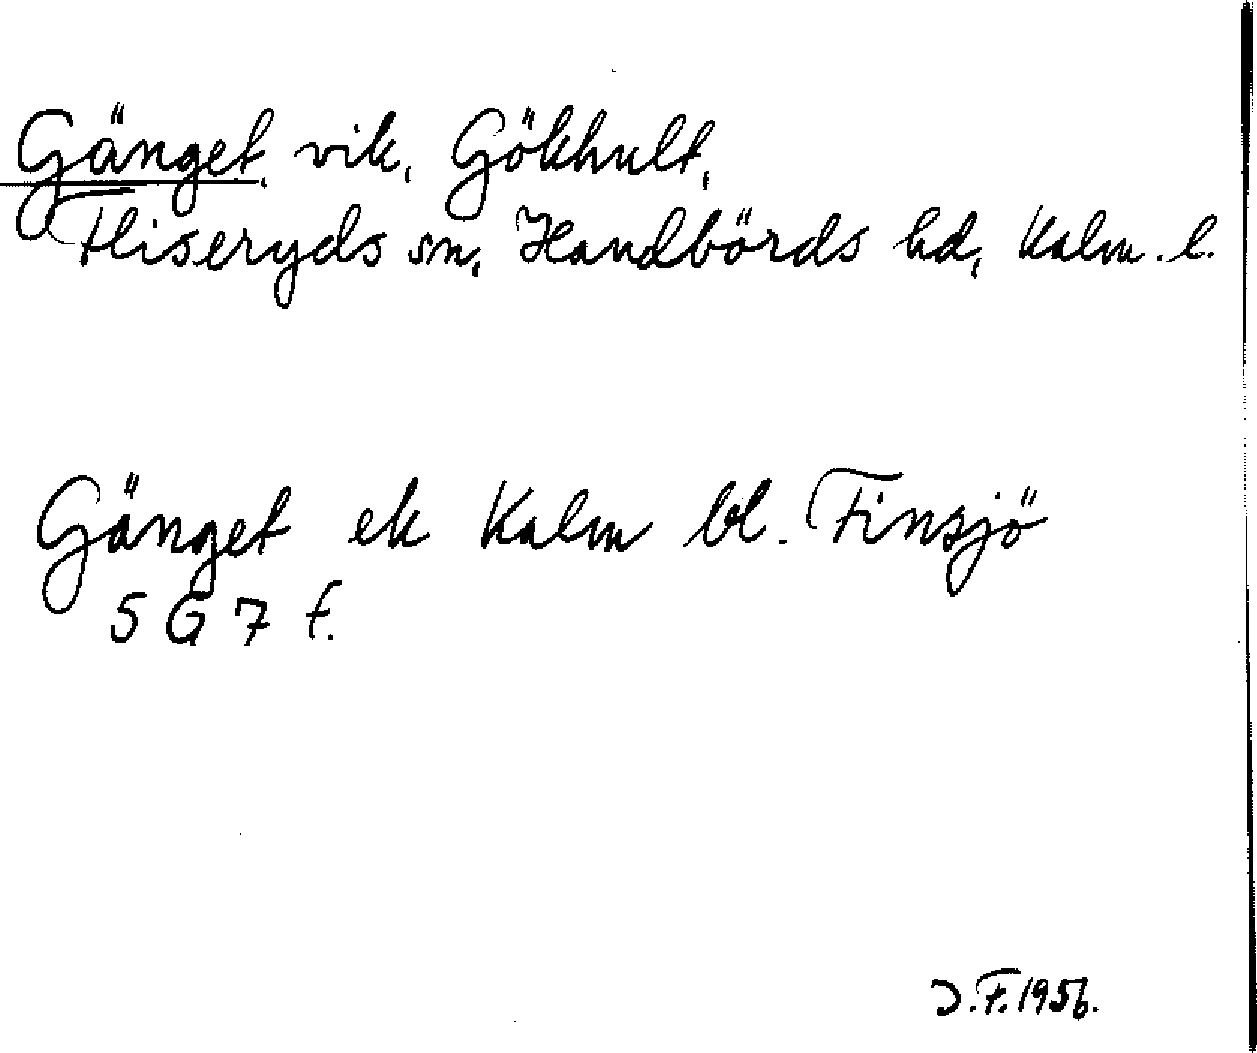 Gänget, vik, Gökhult,
Fliseryds sn, Handbörds hd, Kalm. l.
Gänget ek Kalm bl. Finsjö
5 G 7 f.
J.F. 1956.